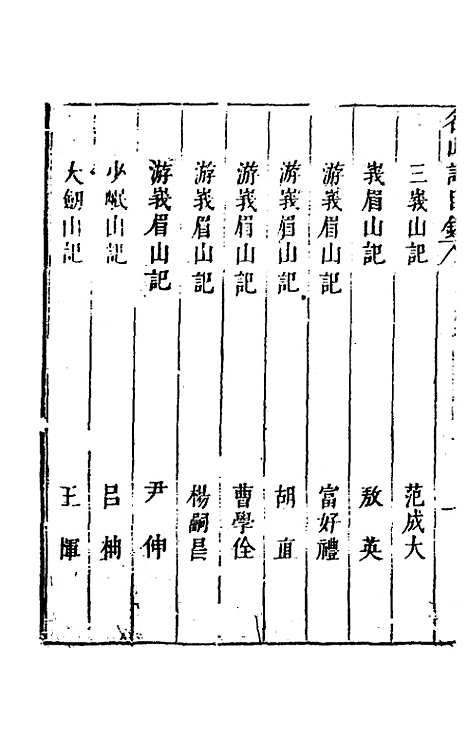 名山記目錄
三峩山記 范成大
峩眉山記 敖英
游峩眉山記 富好禮
游峩眉山記 胡直
游峩眉山記 曹學佺
游峩眉山記 楊嗣昌
游峩眉山記 尹伸
少岷山記 呂柟
大劒山記 王暉